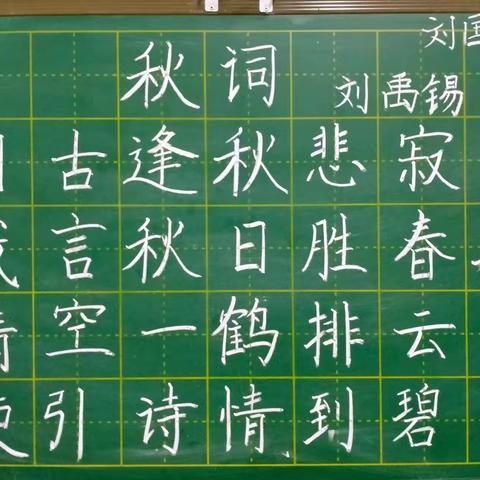 刘国
秋词
刘禹锡
古逢秋悲寂
言秋日胜春
空一鹤排云
引诗情到碧